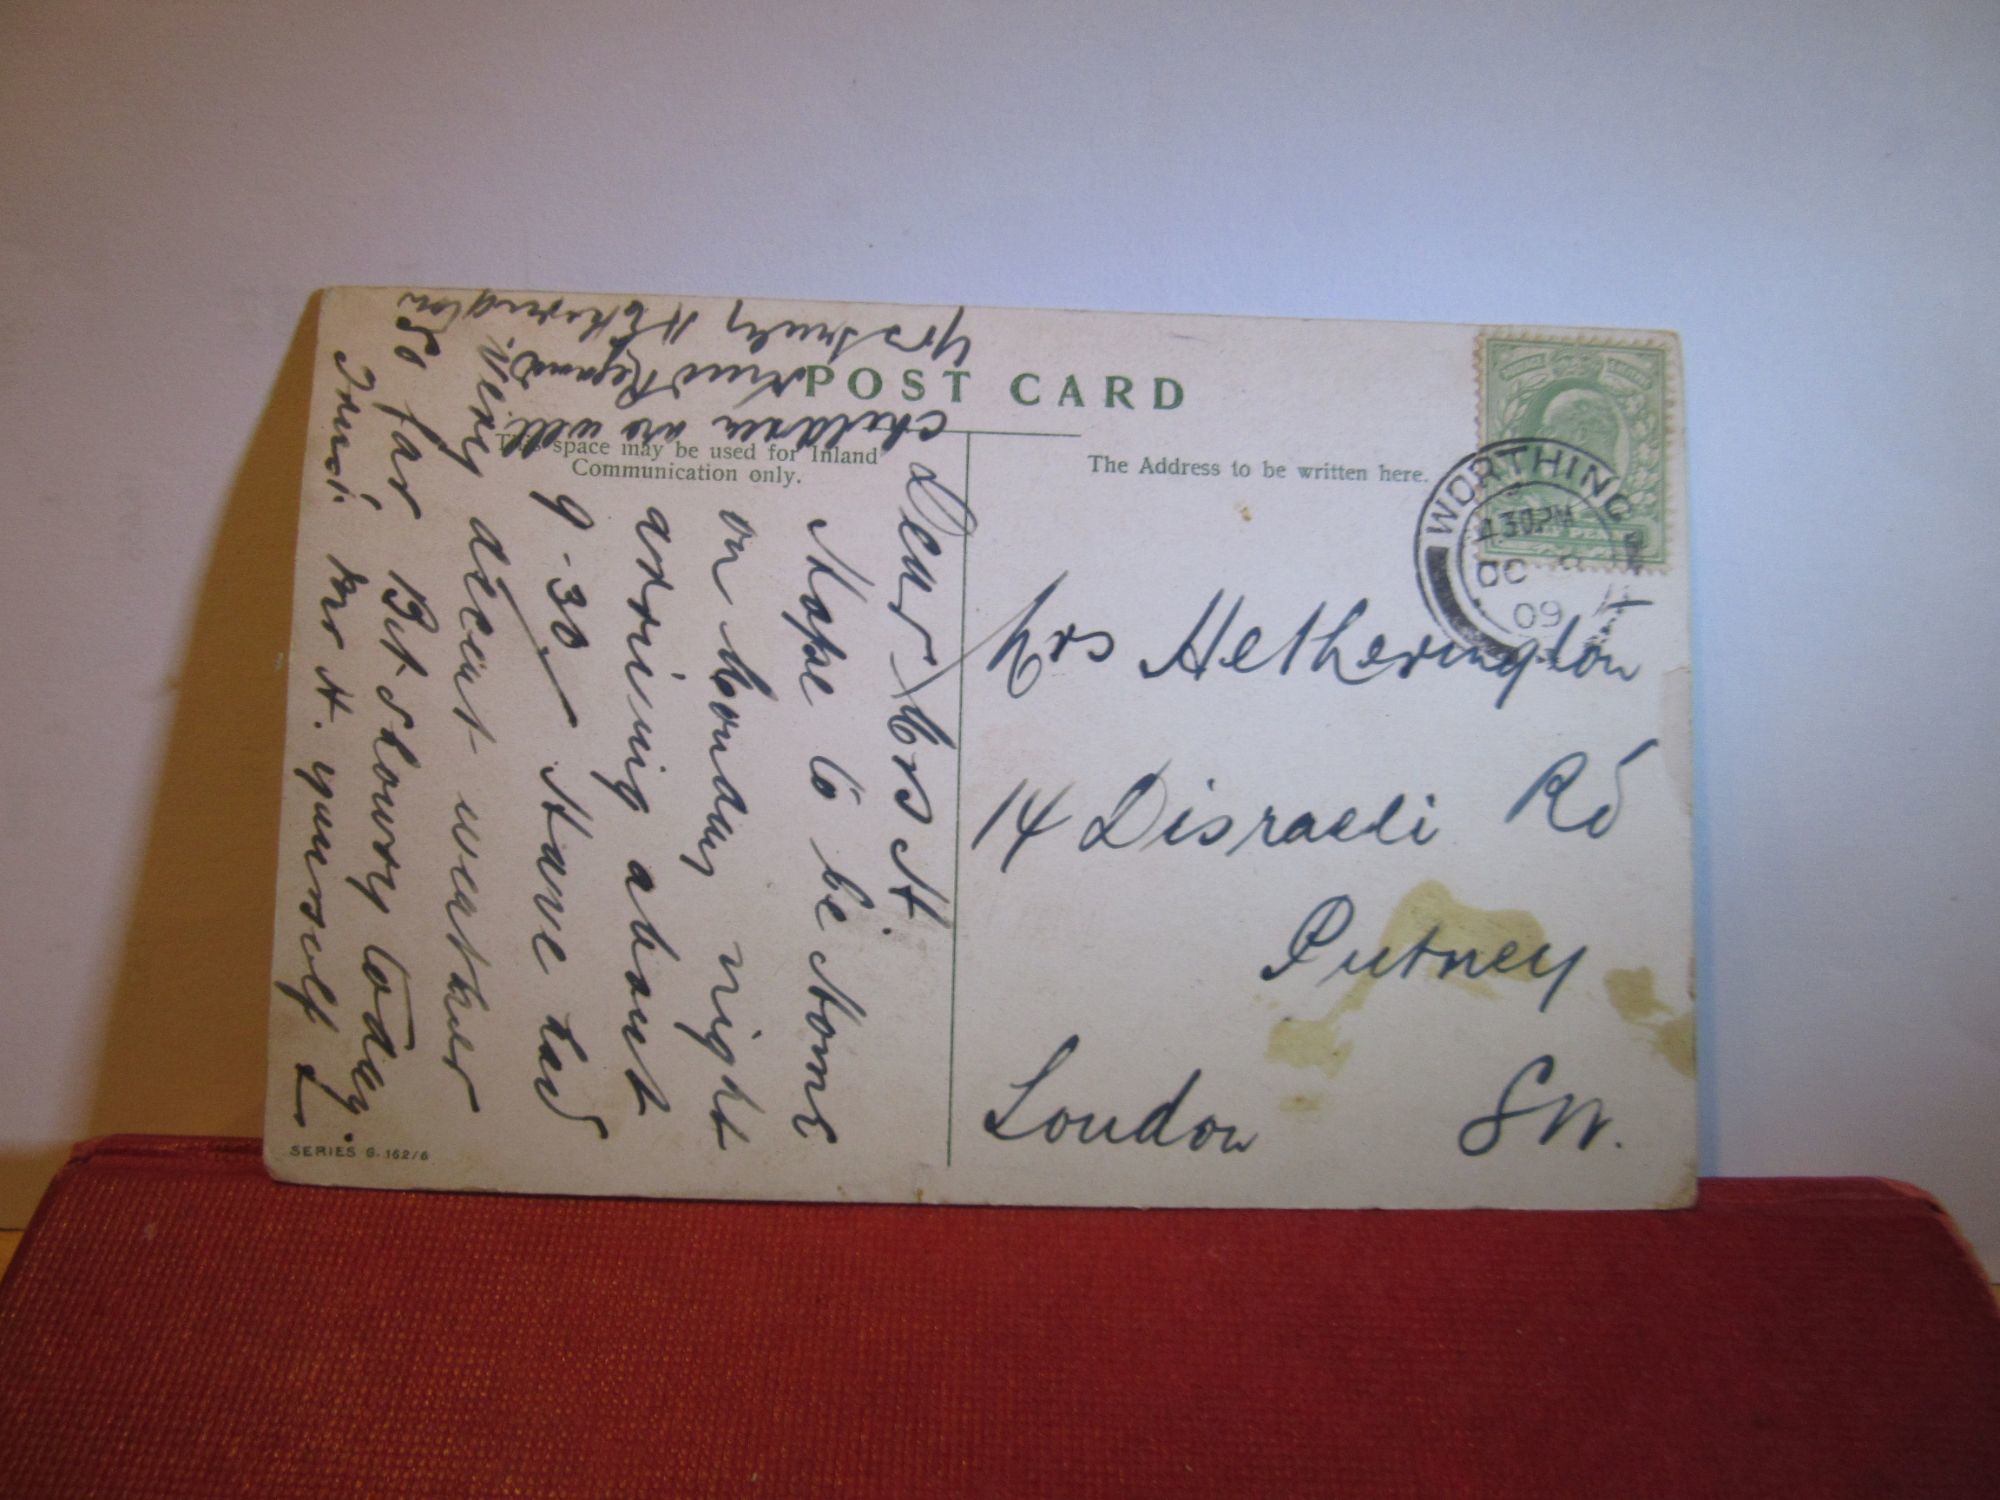 POST CARD
This space may be used for Inland
Communication only.
The Address to be written here.
WORTHING
4.30PM
OC 8
09
Mrs Hetherington
14 Disraeli Rd
Putney
London SW.
Dear Mrs H.
Hope to be Home
on Monday night
arriving about
9-30 Have had
very decent weather
So far Bit Showry today.
Trust Mr H. yourself &
children are well
Kind Regards
Yrs truly Hetherington
SERIES G. 162/6